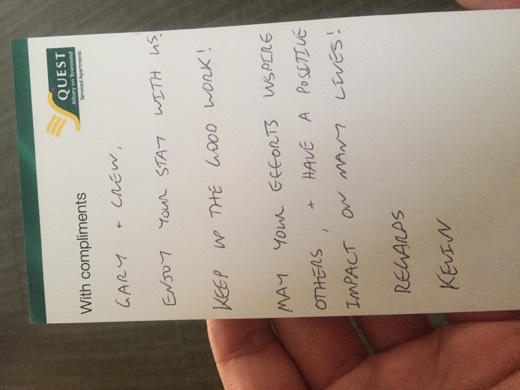 QUEST
Albury on Townsend
Serviced Apartments
With compliments
GARY + CREW,
ENJOY YOUR STAY WITH US!
KEEP UP THE GOOD WORK!
MAY YOUR EFFORTS INSPIRE
OTHERS, + HAVE A POSITIVE
IMPACT ON MANY LIVES!
REGARDS
KEVIN